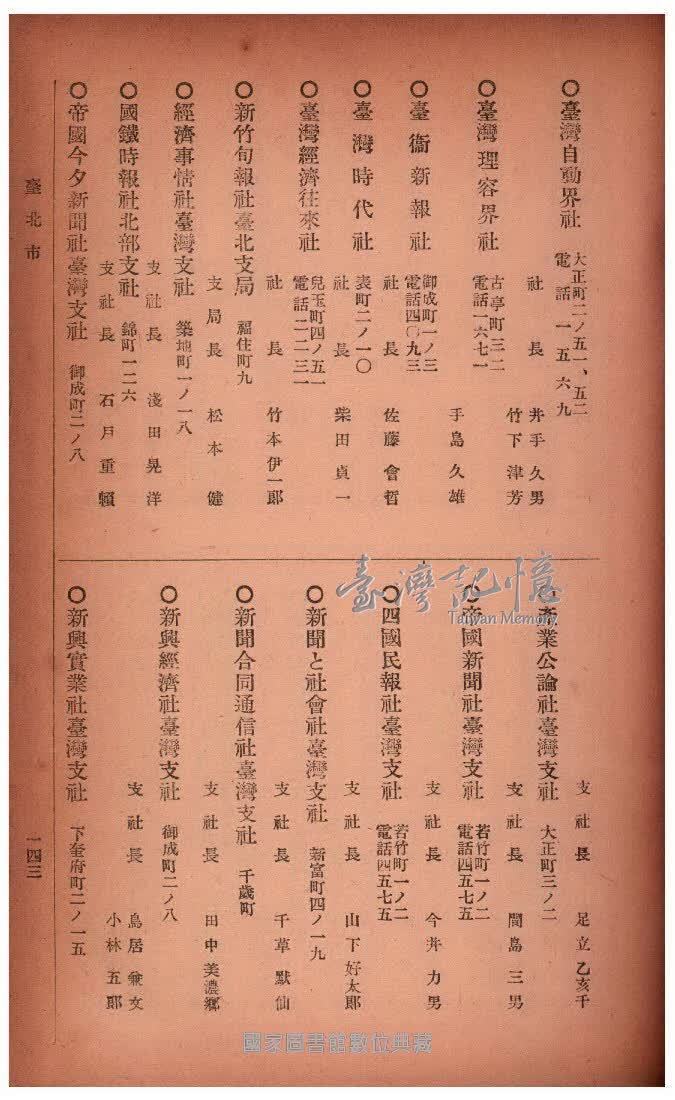 ○臺灣自動界社 大正町二ノ五一、五二
電話 一五六九
社長 井手久男
竹下津芳
○臺灣理容界社 古亭町三二
電話一六七一
手島久雄
○臺衞新報社 御成町一ノ三
電話四〇九三
社長 佐藤會哲
○臺灣時代社 表町二ノ一〇
社長 柴田貞一
○臺灣經濟往來社 兒玉町四ノ五一
電話二二三一
社長 竹本伊一郎
○新竹旬報社臺北支局 福住町九
支局長 松本健
○經濟事情社臺灣支社 築地町一ノ一八
支社長 淺田晃洋
○國鐵時報社北部支社 錦町一二六
支社長 石戶重賴
○帝國今夕新聞社臺灣支社 御成町二ノ八
支社長 足立乙亥千
○產業公論社臺灣支社 大正町三ノ二
支社長 間島三男
○帝國新聞社臺灣支社 若竹町一ノ二
電話四五七五
支社長 今井力男
○四國民報社臺灣支社 若竹町一ノ二
電話四五七五
支社長 山下好太郎
○新聞と社會社臺灣支社 新富町四ノ一九
支社長 千草默仙
○新聞合同通信社臺灣支社 千歲町
支社長 田中美濃鄉
○新興經濟社臺灣支社 御成町二ノ八
支社長 鳥居兼文
小林五郎
○新興實業社臺灣支社 下奎府町二ノ一五
臺北市
一四三
臺灣記憶
Taiwan Memory
國家圖書館數位典藏